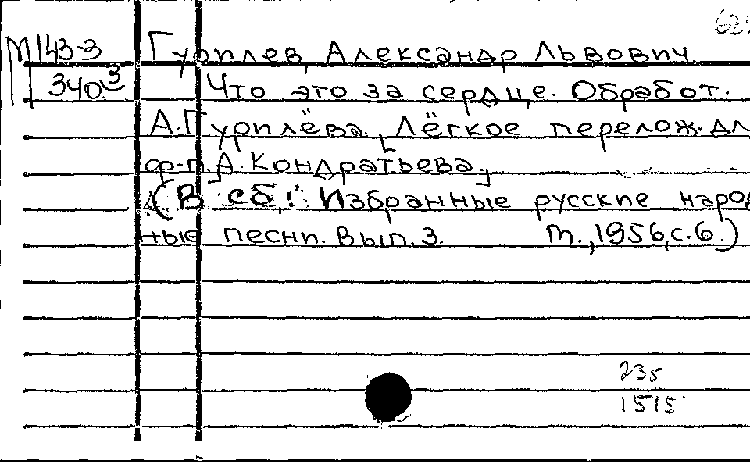 М143-3 Гурилев, Александр Львович
340³ Что это за сердце. Обработ.
А. Гурилёва, [Лёгкое перелож. дл
ф-п. А. Кондратьева]
(В сб.: Избранные русские народ
ные песни. Вып. 3. М., 1956, с. 6.)
235
1515